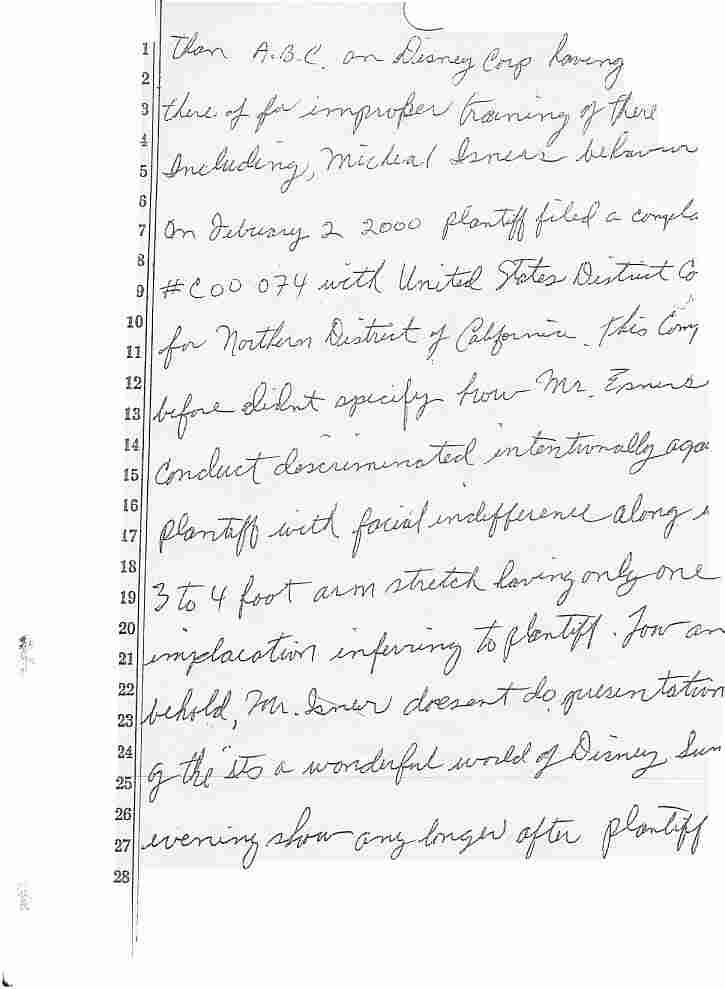 1 than A.B.C. on Disney Corp having
2
3 there of for improper training of there
4
5 Including, Micheal Isners behavour
6
7 On February 2 2000 plantiff filed a compla
8
9 #C00 074 with United States District Co
10
11 for Northern District of California. This Com
12
13 before didnt specify how Mr. Esners
14
15 Conduct descriminated intentionally aga
16
17 plantiff with facial indifference along
18
19 3 to 4 foot arm stretch having only one
20
21 implacation inferring to plantiff. Low an
22
23 behold, Mr. Isner doesent do presentation
24
25 of the "its a wonderful world of Disney Sun
26
27 evening show any longer after plantiff
28